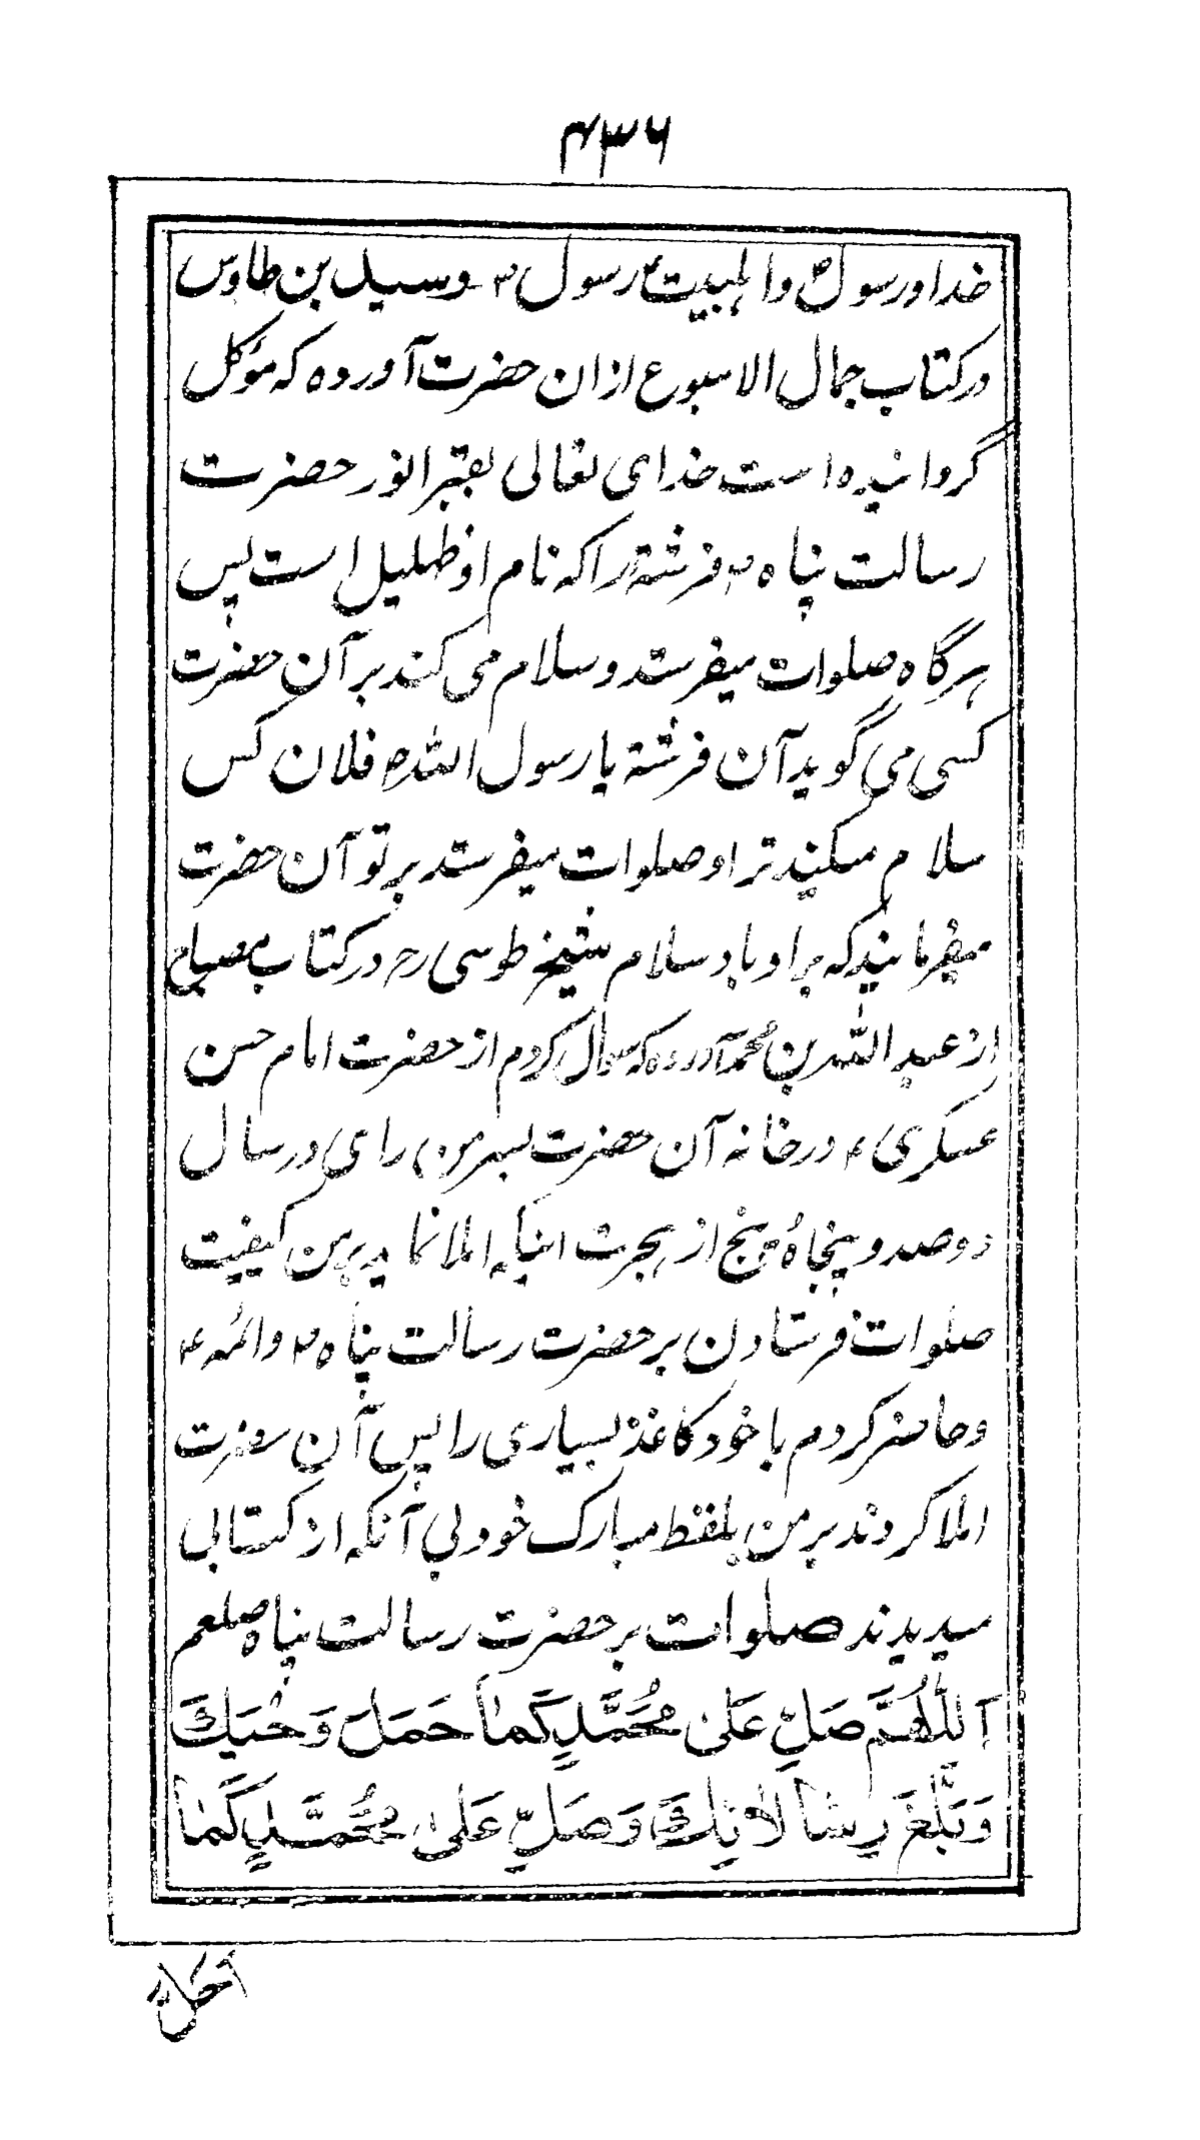 ۴۳۶
خدا و رسول ص و اهلبیت رسول ص و سید بن طاوس
در کتاب جمال الاسبوع از ان حضرت آورده که مؤکل
گردانیده است خدای تعالی بقبر انور حضرت
رسالت پناه ص فرشتۀ را که نام او ظهلیل است پس
هرگاه صلوات میفرستد و سلام می کند بر آن حضرت
کسی می گوید آن فرشتۀ یا رسول الله ص فلان کس
سلام میکند ترا و صلوات میفرستد بر تو آن حضرت
میفرمایند که بر او باد سلام شیخ طوسی رح در کتاب مصباح
از عبد الله بن محمد آورده که سوال کردم از حضرت امام حسن
عسکری ع در خانه آن حضرت بسر من رای در سال
دو صد و پنجاه و پنج از هجرت اینکه املا نماید بر من کیفیت
صلوات فرستادن بر حضرت رسالت پناه ص و ائمه ع
و حاضر کردم با خود کاغذ بسیاری را پس آن حضرت
املا کردند بر من بلفظ مبارک خود بی آنکه از کتابی
میدیدند صلوات بر حضرت رسالت پناه صلعم
اَللّٰهُمَّ صَلِّ عَلٰی مُحَمَّدٍ کَمٰا حَمَلَ وَحْیَكَ
وَ بَلَّغَ رِسٰالاٰتِكَ وَ صَلِّ عَلٰی مُحَمَّدٍ کَمٰا
اَحَلَّ